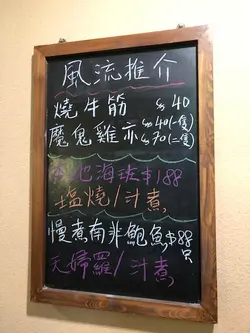 風流推介
燒牛筋 $40
魔鬼雞亦 $40/一隻
$70/二隻
地海班$188
塩燒/汁煮
慢煮南非鮑魚$88
只
天婦羅/汁煮